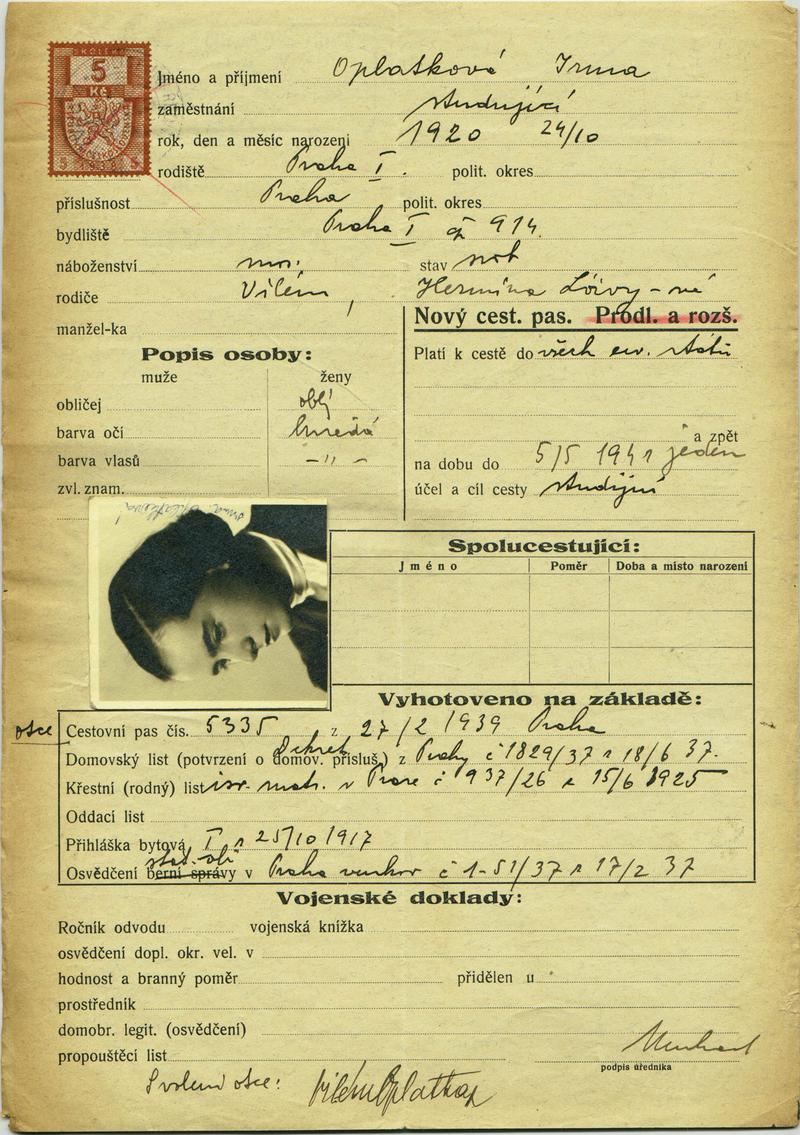 ŠKOLSKÝ
5
Kč
Jméno a příjmení Oplatková Irma
zaměstnání studující
rok, den a měsíc narození 1920 24/10
rodiště Praha I. polit. okres
příslušnost Praha polit. okres
bydliště Praha I čp 914
náboženství stav
rodiče Vilém, Hermína Löwy-ná
manžel-ka
Nový cest. pas. Prodl. a rozš.
Popis osoby:
Platí k cestě do všech ev. států
muže ženy
obličej oblý
barva očí hnědá
a zpět
barva vlasů –"–
na dobu do 5/5 1941 jeden
zvl. znam.
účel a cíl cesty studijní
Spolucestující:
Jméno Poměr Doba a místo narození
Vyhotoveno na základě:
otce Cestovní pas čís. 5335 z 27/2 1939 Praha
Domovský list (potvrzení o domov. přísluš.) z Prahy č 1829/37 z 18/6 37.
Křestní (rodný) list isr. matr. v Praze č 937/26 z 15/6 1925
Oddací list
Přihláška bytová I z 25/10 1917
Osvědčení berní správy stát. ob. v Praha venkov č 1-51/37 z 17/2 37
Vojenské doklady:
Ročník odvodu vojenská knížka
osvědčení dopl. okr. vel. v
hodnost a branný poměr přidělen u
prostředník
domobr. legit. (osvědčení)
propouštěcí list
podpis úředníka
Svolení otce: Vilém Oplatka